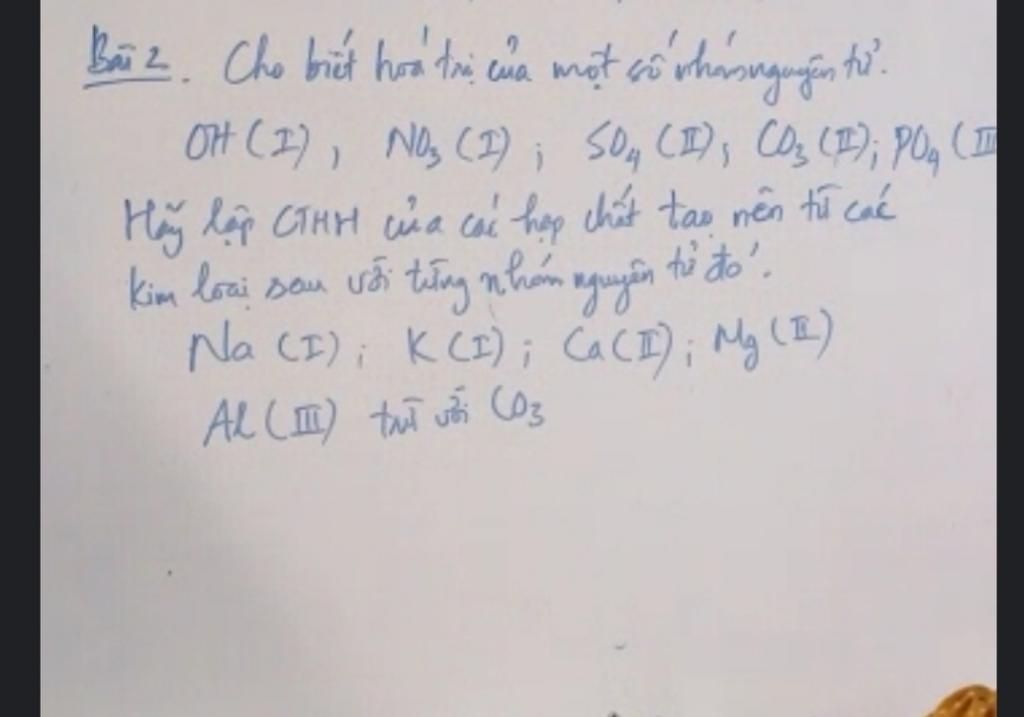 Bài 2. Cho biết hoá trị của một số nhóm nguyên tử.
OH (I), NO₃ (I); SO₄ (II); CO₃ (II); PO₄ (III
Hãy lập CTHH của các hợp chất tạo nên từ các
kim loại sau với từng nhóm nguyên tử đó.
Na (I); K (I); Ca (II); Mg (II)
Al (III) trừ với CO₃